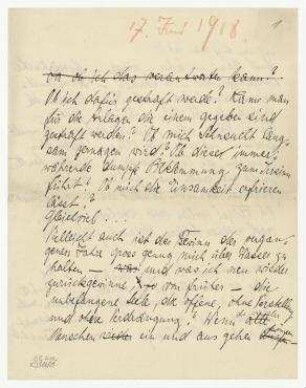 17. Juni 1918 1
ob ich das verantworten kann?
Ob ich dafür gestraft werde? Kann man
für die Anlagen die einem gegeben sind
gestraft werden? Ob mich Sehnsucht lang-
sam zernagen wird? Ob dieser immer-
währende dumpfe Beklemmung zum Irrsinn
führt? Ob mich die Einsamkeit erfrieren
lässt?
Gleichviel...
Vielleicht auch ist der Gewinn der vergan-
genen Jahre gross genug mich über Wasser zu
halten – und was ich neu wieder
zurückgewinne, von früher – die
unbefangene Seele, die offene, ohne Vorstellung
und ohne Verdrängung? Wenn
Menschen ein und aus gehen